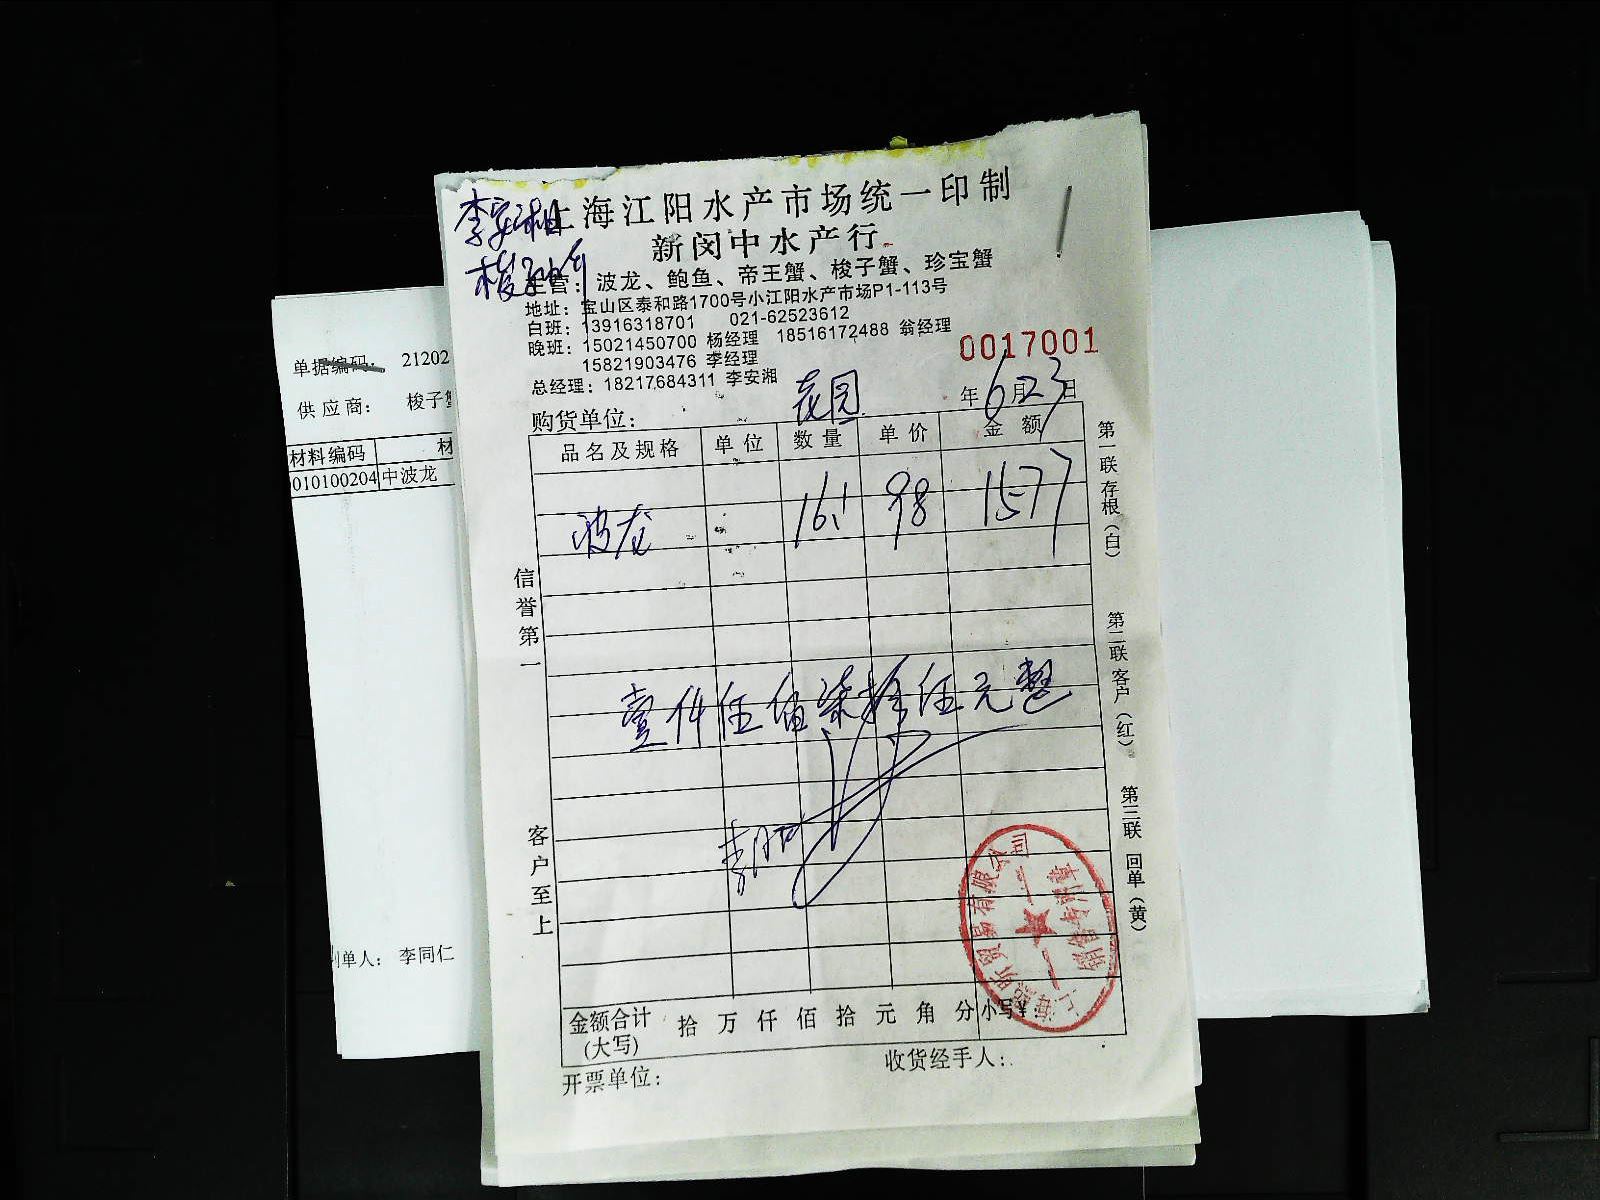 上海江阳水产市场统一印制
李安湘
新闵中水产行
梭子蟹
主营：波龙、鲍鱼、帝王蟹、梭子蟹、珍宝蟹
地址：宝山区泰和路1700号小江阳水产市场P1-113号
白班：13916318701 021-62523612
晚班：15021450700 杨经理 18516172488 翁经理
15821903476 李经理
0017001
总经理：18217684311 李安湘
购货单位：花园 年6月23日
品名及规格 单位 数量 单价 金额
波龙 16.1 98 1577
壹仟伍佰柒拾伍元整
信誉第一
客户至上
第一联存根（白）
第二联客户（红）
第三联 回单（黄）
金额合计(大写) 拾 万 仟 佰 拾 元 角 分 小写¥：
开票单位： 收货经手人：
销售专用章
单据编码： 21202
供应商： 梭子蟹
材料编码 材
010100204 中波龙
制单人： 李同仁